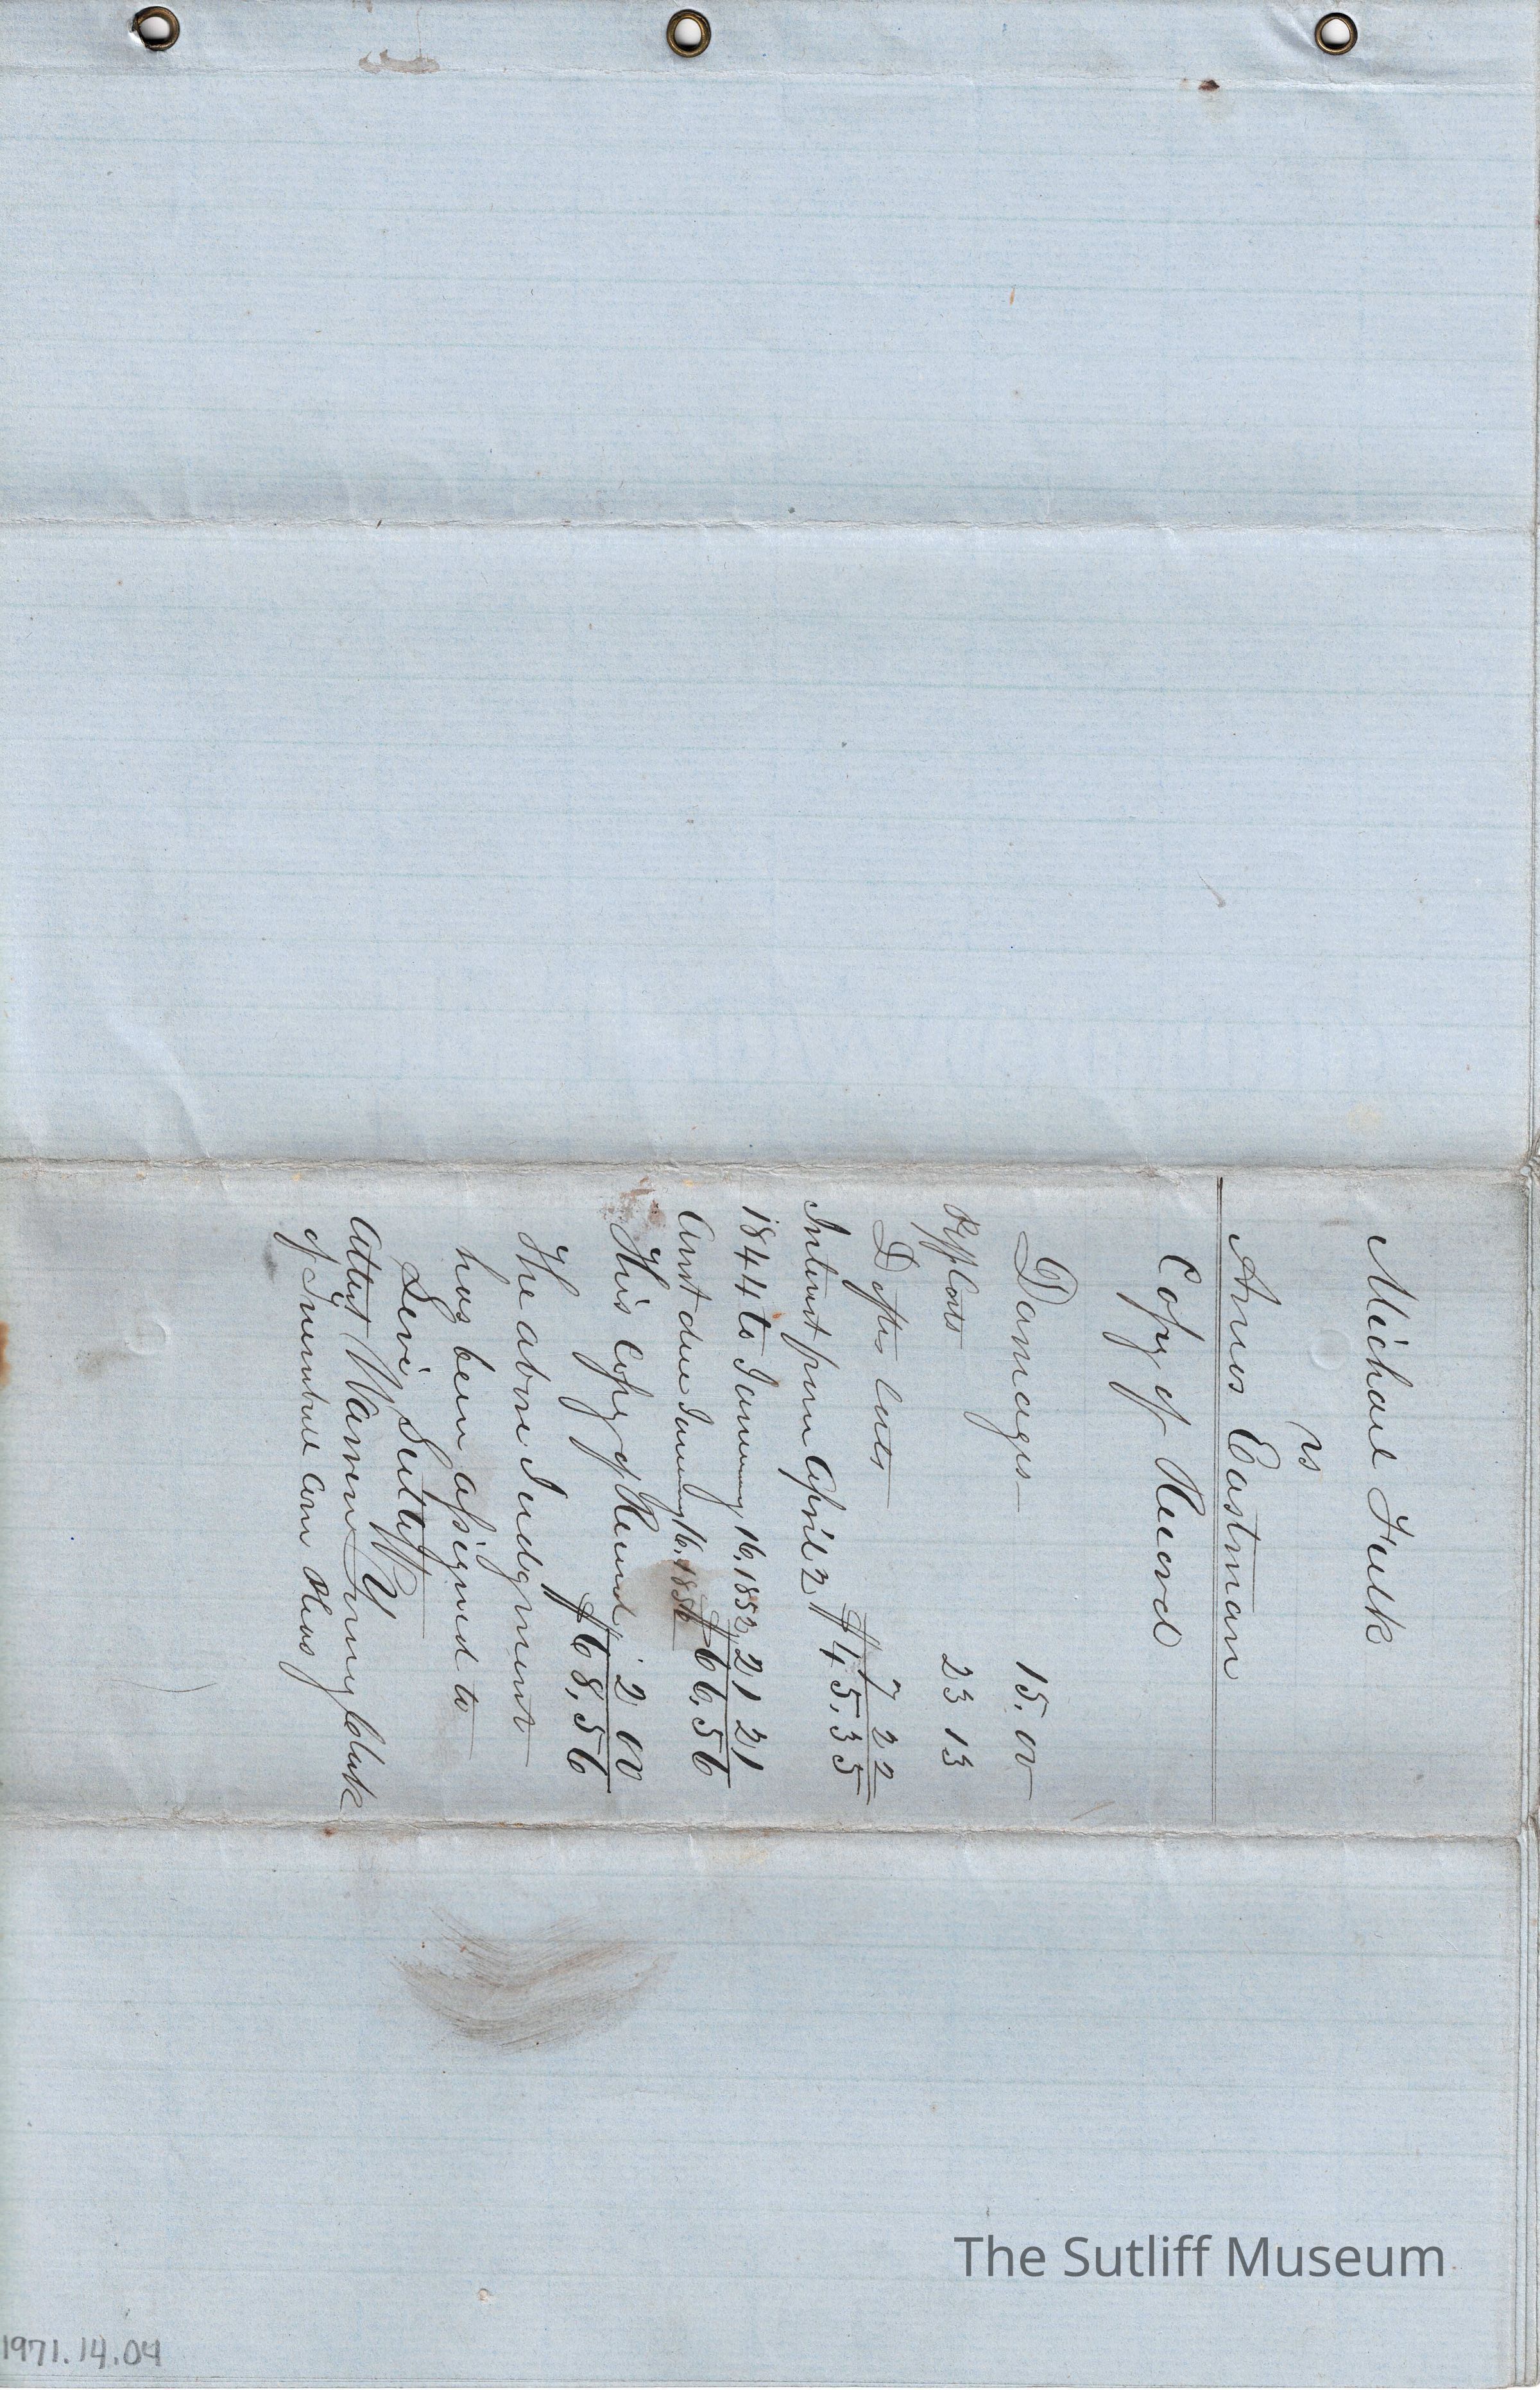 Michael Fulk
vs
Amos Eastman
Copy of Record
Damages 15.00
Plffs Costs 23 13
Defts Costs 7 22
$45.35
Interest from April 2
1844 to January 16, 1852 21 21
Amt due January 16, 1852 $66.56
This Copy of Record 2 00
$68.56
The above Judgment
has been assigned to
Levi Sutliff
Attest Warren Young Clerk
of Trumbull Com Pleas
The Sutliff Museum
1971.14.04